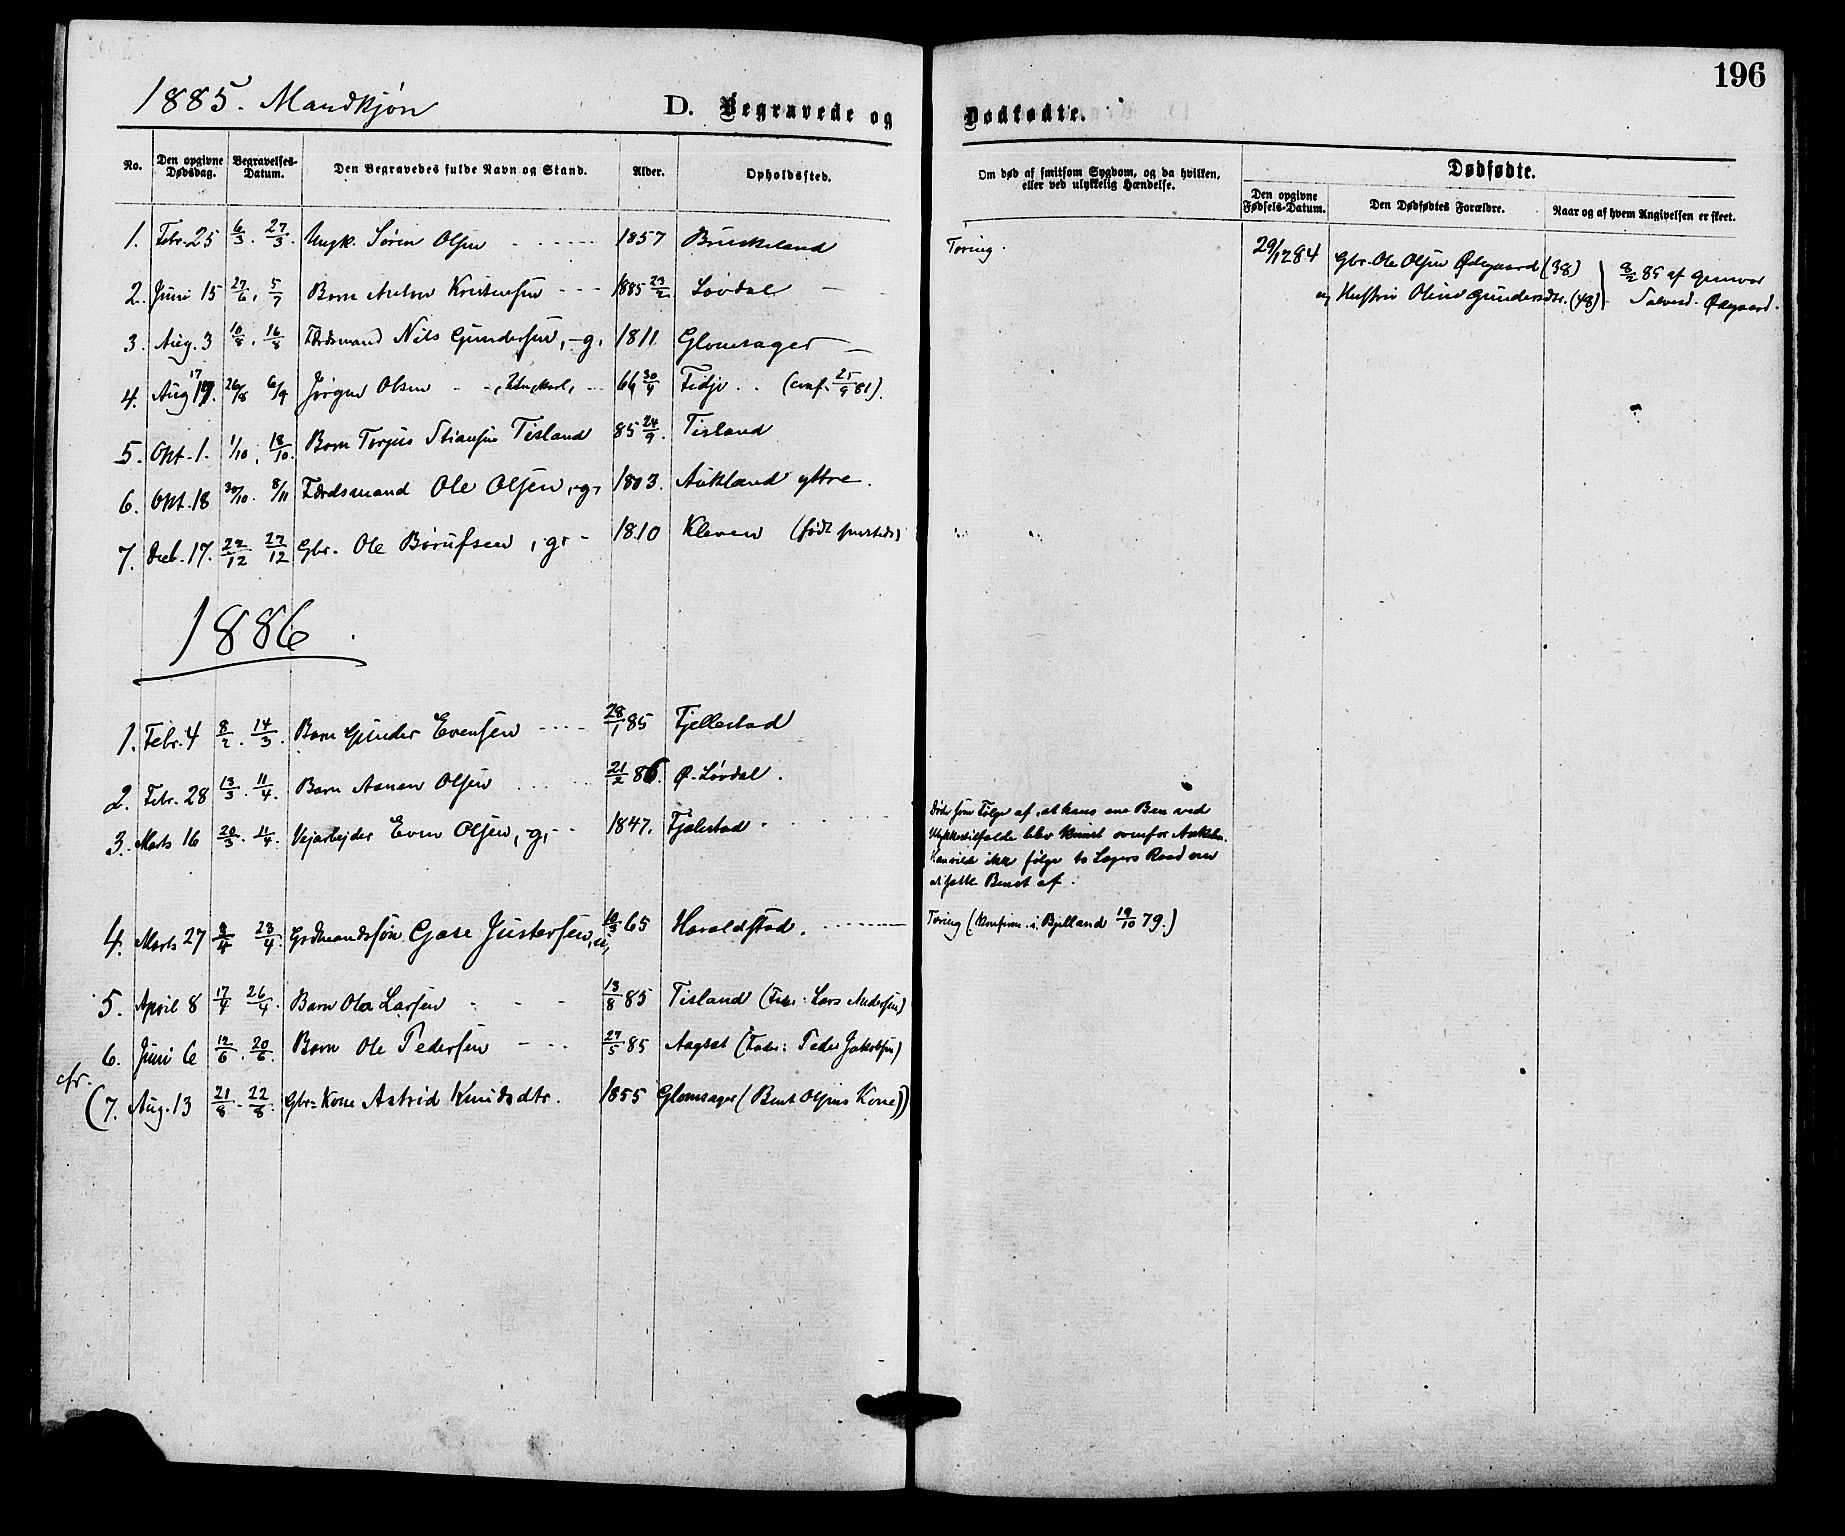 196
1885. Mandkjøn
D. Begravede og Dødfødte.
No.
Den opgivne Dødsdag.
Begravelses-Datum.
Den Begravedes fulde Navn og Stand.
Alder.
Opholdssted.
Om død af smitsom Sygdom, og da hvilken, eller ved ulykkelig Hændelse.
Dødfødte.
Den opgivne Fødsels-Datum.
Den Dødfødtes Forældre.
Naar og af hvem Angivelsen er skeet.
1. Febr. 25 6/3. 27/3. Ungk. Søren Olsen 1857 Birkeland Tæring. 29/12 84 Gbr. Ole Olsen Ødegaard (38) 8/2 85 af Gunvor
og Hustru Oline Gundersdtr. (48) Salvesd. Ødegaard.
2. Juni 15 27/6. 5/7 Barn Anton Kristensen 1885 23/2 Løvdal
3. Aug. 3 10/8. 16/8 Fædsmand Nils Gundersen, -g, 1811 Glomsager
4. Aug 17. 26/8 6/9 Jørgen Olsen 66 30/4 Fidje (conf. 25/9 81).
5. Okt. 1. 1/10. 18/10. Barn Torjus Stiansen Tisland 85 24/9. Tisland
6. Okt. 18 30/10. 8/11 Fædsmand Ole Olsen, -g, 1803. Aukland yttre.
7. Decb. 17. 22/12 27/12 Gbr. Ole Børufsen, -g- 1810 Kleven (født
1886.
1. Febr. 4 8/2. 14/3. Barn Gunder Evensen 28/1 85 Fjellestad
2. Febr. 28 13/3. 11/4. Barn Aanen Olsen 21/2 86. Ø. Løvdal.
3. Marts 16 20/3. 11/4. Vejarbejder Even Olsen, -g, 1847. Fjelestad. Døde som Følge af, at hans ene Ben ved
Ulykkestilfælde blev knust ovenfor Ankelen.
Han vilde ikke følge to Lægers Raad om
at sætte Benet af.
4. Marts 27 8/4 23/4. Grdmandssøn Gase Justersen, u, 10/3 65 Haraldstad. Tæring (konfirm. i Bjelland 19/10 79.)
5. April 8 17/4 26/4. Barn Ola Larsen 13/8 85 Tisland (Fader: Lars Andersen)
6. Juni 6 12/6. 20/6. Barn Ole Pedersen 27/5 85 Aagset (Fader: Peder Jakobsen)
cfr.
(7. Aug. 13 21/8. 22/8. Gbr-Kone Astrid Knudsdtr. 1855 Glomsager (Bent Olsens Kone))